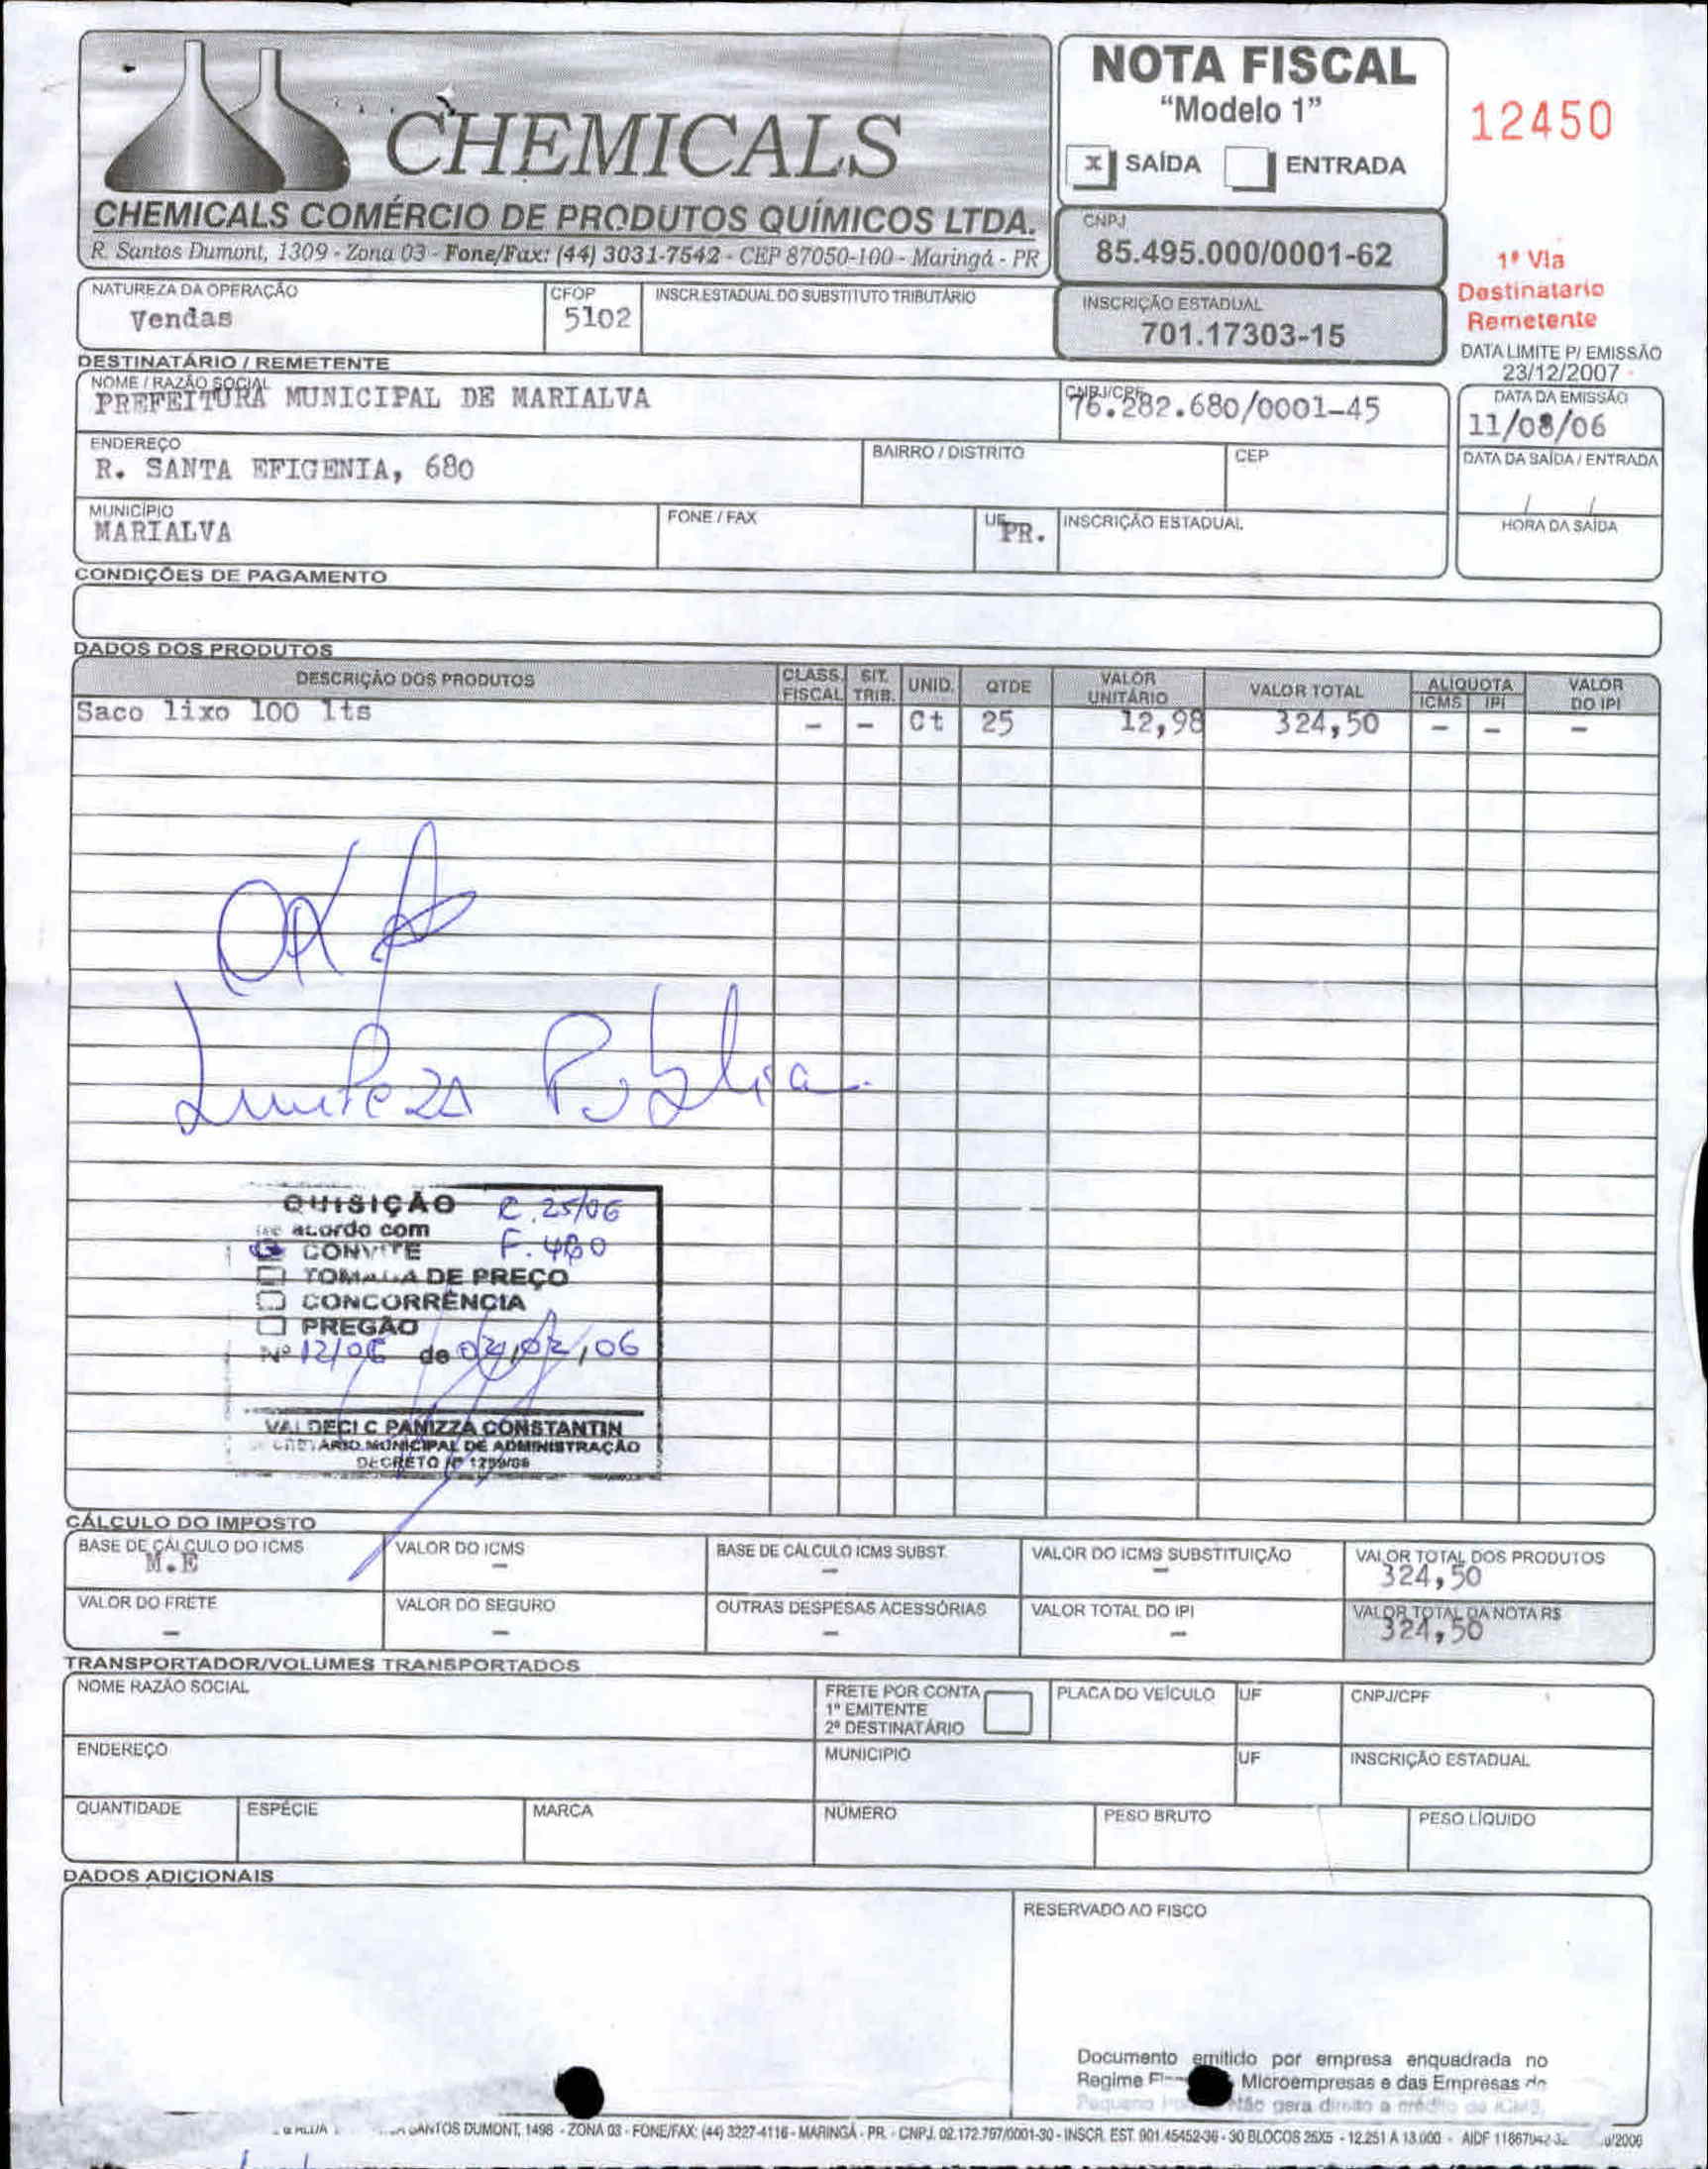 CHEMICALS
CHEMICALS COMÉRCIO DE PRODUTOS QUÍMICOS LTDA.
R. Santos Dumont, 1309 - Zona 03 - Fone/Fax: (44) 3031-7542 - CEP 87050-100 - Maringá - PR
NOTA FISCAL
"Modelo 1"
x SAÍDA ENTRADA
12450
CNPJ
85.495.000/0001-62
1ª Via
Destinatario
Remetente
NATUREZA DA OPERAÇÃO CFOP INSCR.ESTADUAL DO SUBSTITUTO TRIBUTÁRIO
Vendas 5102
INSCRIÇÃO ESTADUAL
701.17303-15
DATA LIMITE P/ EMISSÃO
23/12/2007
DESTINATÁRIO / REMETENTE
NOME / RAZÃO SOCIAL CNPJ/CPF
PREFEITURA MUNICIPAL DE MARIALVA 76.282.680/0001-45
DATA DA EMISSÃO
11/08/06
ENDEREÇO BAIRRO / DISTRITO CEP
R. SANTA EFIGENIA, 680
DATA DA SAÍDA / ENTRADA
/ /
MUNICÍPIO FONE / FAX UF INSCRIÇÃO ESTADUAL
MARIALVA PR.
HORA DA SAÍDA
CONDIÇÕES DE PAGAMENTO
DADOS DOS PRODUTOS
DESCRIÇÃO DOS PRODUTOS CLASS. FISCAL SIT. TRIB. UNID. QTDE VALOR UNITÁRIO VALOR TOTAL ALIQUOTA ICMS IPI VALOR DO IPI
Saco lixo 100 lts - - Ct 25 12,98 324,50 - - -
OK
Limpeza Publica
QUISIÇÃO C. 25/06
acordo com
CONVITE F.
TOMADA DE PREÇO
CONCORRÊNCIA
PREGÃO
Nº 12/06 de 06
VALDECI C PANIZZA CONSTANTIN
MUNICIPAL DE ADMINISTRAÇÃO
DECRETO Nº
CÁLCULO DO IMPOSTO
BASE DE CÁLCULO DO ICMS VALOR DO ICMS BASE DE CÁLCULO ICMS SUBST. VALOR DO ICMS SUBSTITUIÇÃO VALOR TOTAL DOS PRODUTOS
M.E - - - 324,50
VALOR DO FRETE VALOR DO SEGURO OUTRAS DESPESAS ACESSÓRIAS VALOR TOTAL DO IPI VALOR TOTAL DA NOTA R$
- - - - 324,50
TRANSPORTADOR/VOLUMES TRANSPORTADOS
NOME RAZÃO SOCIAL FRETE POR CONTA PLACA DO VEÍCULO UF CNPJ/CPF
1º EMITENTE
2º DESTINATÁRIO
ENDEREÇO MUNICIPIO UF INSCRIÇÃO ESTADUAL
QUANTIDADE ESPÉCIE MARCA NÚMERO PESO BRUTO PESO LÍQUIDO
DADOS ADICIONAIS
RESERVADO AO FISCO
Documento emitido por empresa enquadrada no
Regime Microempresas e das Empresas de
Pequeno Não gera direito a crédito de ICMS.
SANTOS DUMONT, 1498 - ZONA 03 - FONE/FAX: (44) 3227-4116 - MARINGÁ - PR. - CNPJ. 02.172.797/0001-30 - INSCR. EST. 901.45452-36 - 30 BLOCOS 25X5 - 12.251 A 13.000 - AIDF /2006